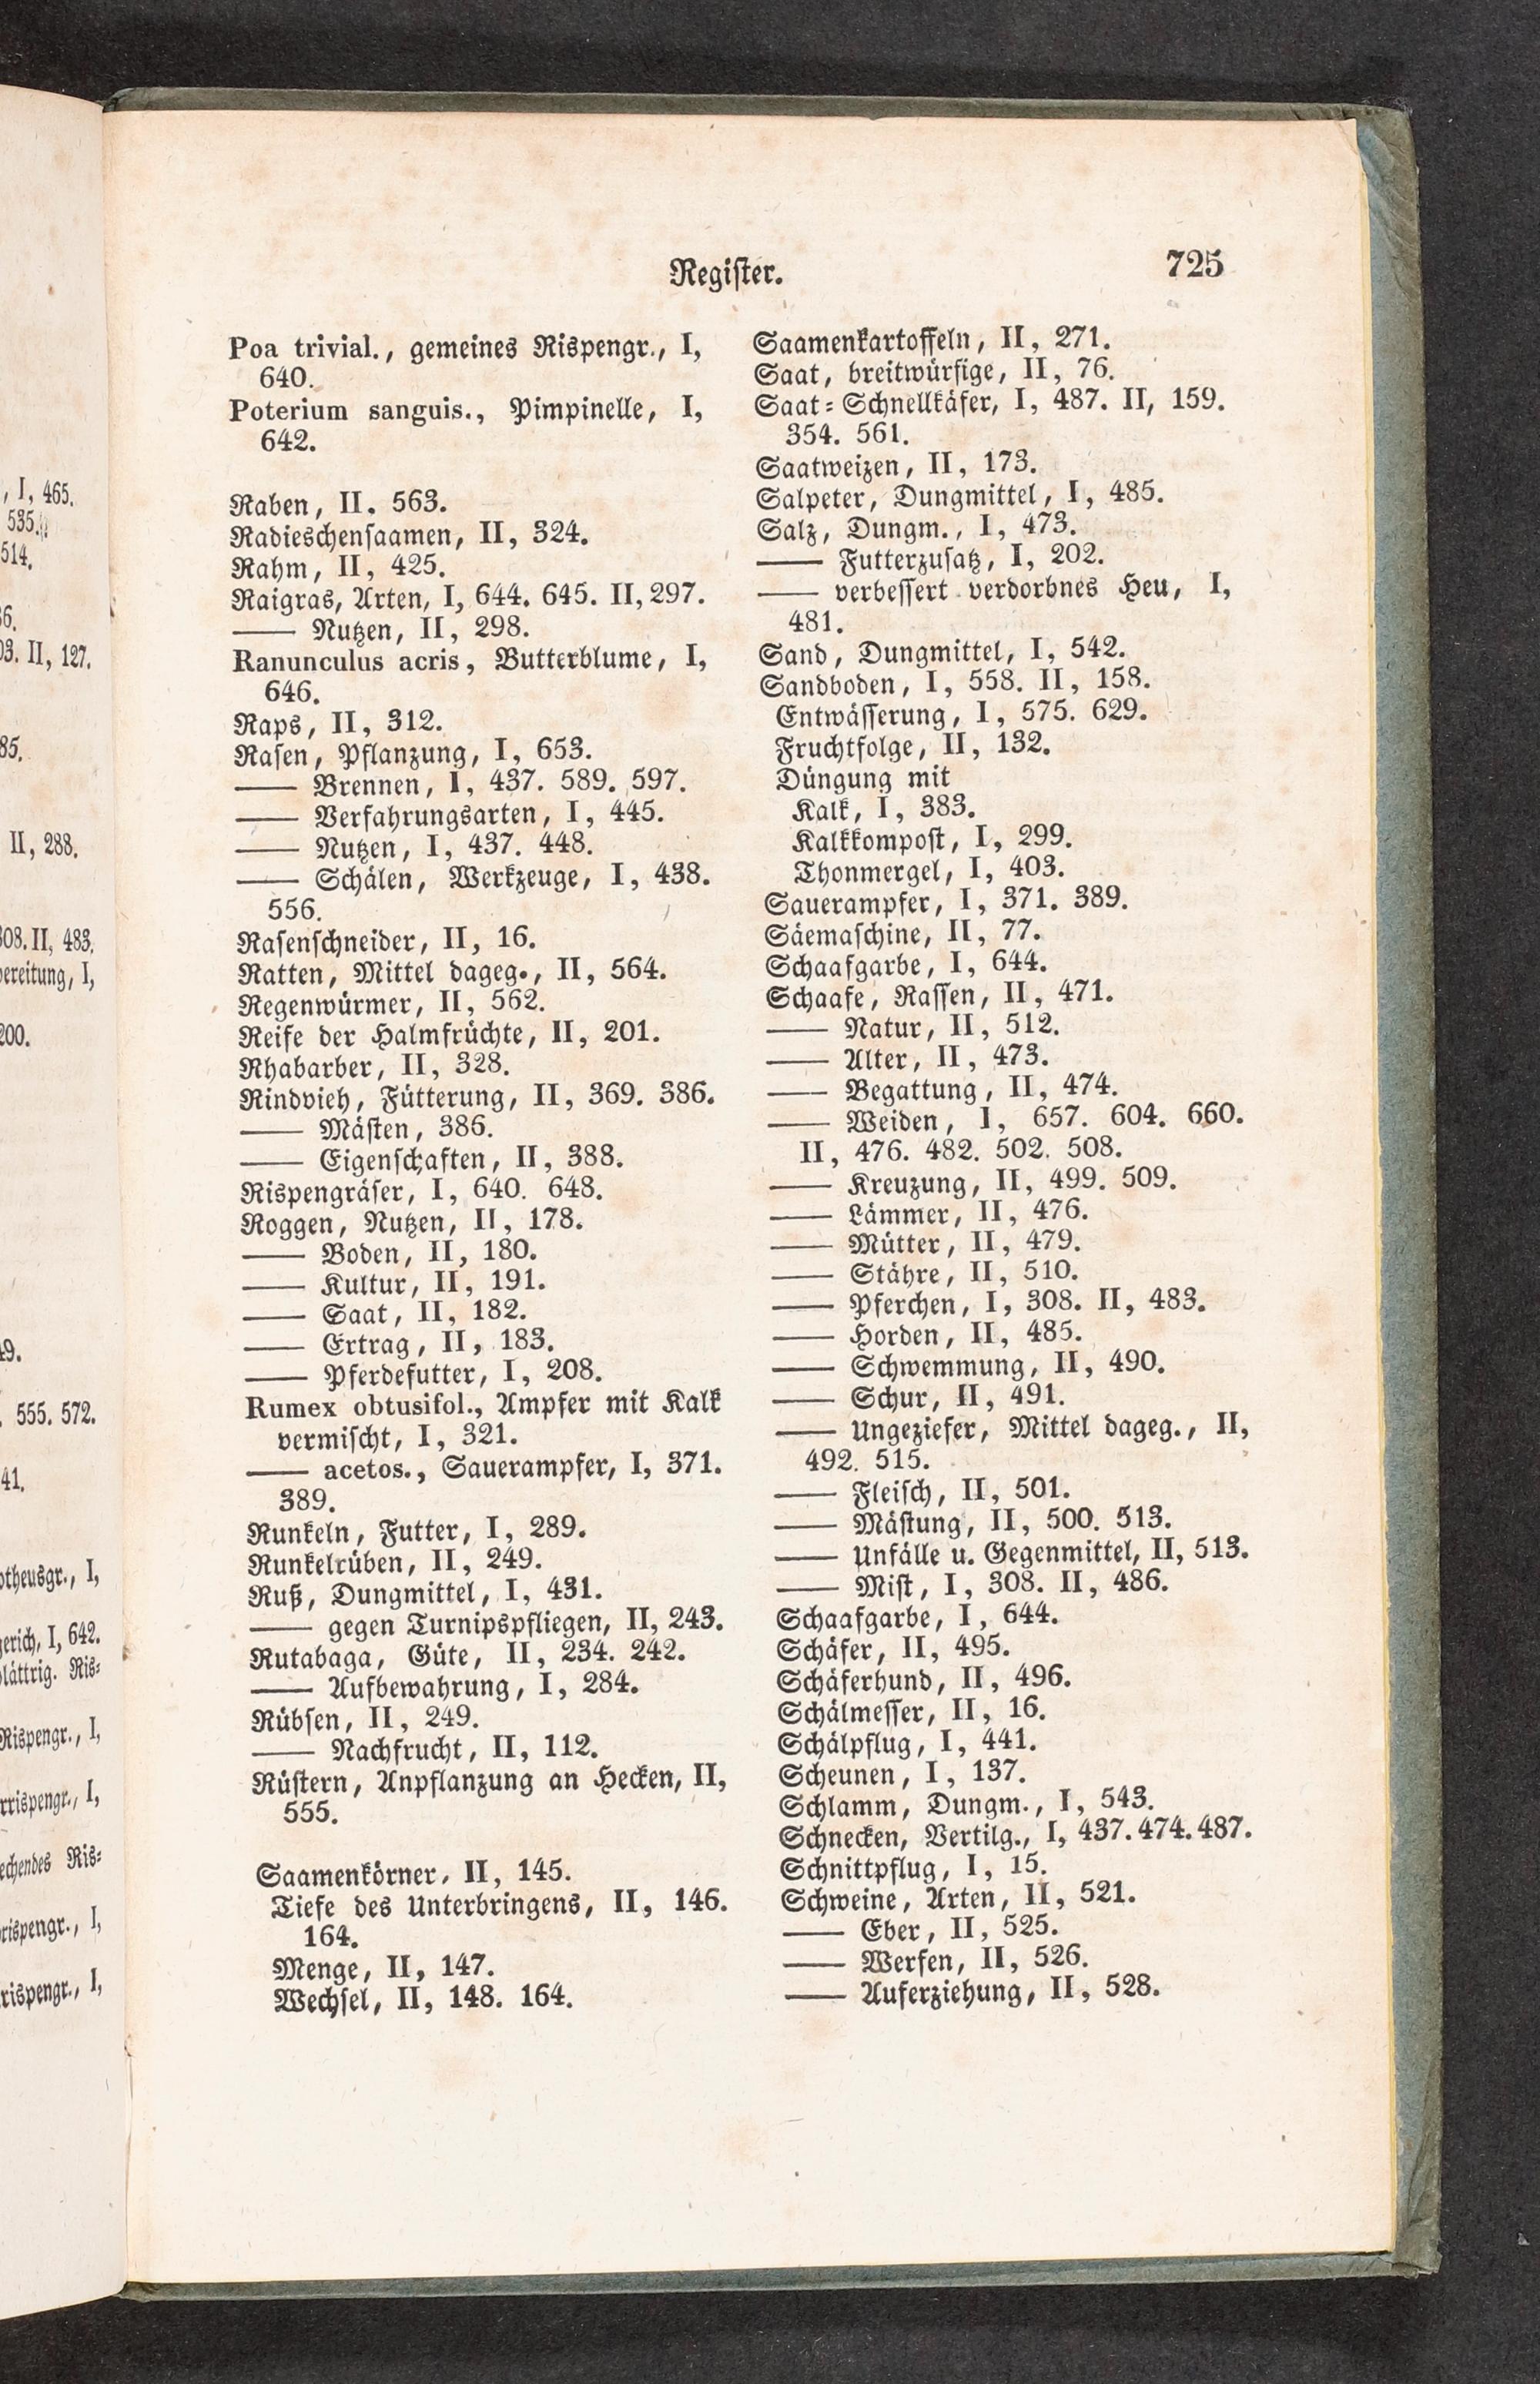 , I, 465.
535.
514.
36.
03. II, 127.
85.
II, 288.
308. II, 483.
bereitung, I,
200.
49.
, 555. 572.
41.
otheusgr., I,
gerich, I, 642.
blättrig. Ris⸗
Rispengr., I,
rrispengr., I,
echendes Ris⸗
rispengr., I,
rrispengr., I,
Register.
725
Poa trivial., gemeines Rispengr., I,
640.
Poterium sanguis., Pimpinelle, I,
642.
Raben, II. 563.
Radieschensaamen, II, 324.
Rahm, II, 425.
Raigras, Arten, I, 644. 645. II, 297.
—— Nutzen, II, 298.
Ranunculus acris, Butterblume, I,
646.
Raps, II, 312.
Rasen, Pflanzung, I, 653.
—— Brennen, I, 437. 589. 597.
—— Verfahrungsarten, I, 445.
—— Nutzen, I, 437. 448.
—— Schälen, Werkzeuge, I, 438.
556.
Rasenschneider, II, 16.
Ratten, Mittel dageg., II, 564.
Regenwürmer, II, 562.
Reife der Halmfrüchte, II, 201.
Rhabarber, II, 328.
Rindvieh, Fütterung, II, 369. 386.
—— Mästen, 386.
—— Eigenschaften, II, 388.
Rispengräser, I, 640. 648.
Roggen, Nutzen, II, 178.
—— Boden, II, 180.
—— Kultur, II, 191.
—— Saat, II, 182.
—— Ertrag, II, 183.
—— Pferdefutter, I, 208.
Rumex obtusifol., Ampfer mit Kalk
vermischt, I, 321.
—— acetos., Sauerampfer, I, 371.
389.
Runkeln, Futter, I, 289.
Runkelrüben, II, 249.
Ruß, Dungmittel, I, 431.
—— gegen Turnipspfliegen, II, 243.
Rutabaga, Güte, II, 234. 242.
—— Aufbewahrung, I, 284.
Rübsen, II, 249.
—— Nachfrucht, II, 112.
Rüstern, Anpflanzung an Hecken, II,
555.
Saamenkörner, II, 145.
Tiefe des Unterbringens, II, 146.
164.
Menge, II, 147.
Wechsel, II, 148. 164.
Saamenkartoffeln, II, 271.
Saat, breitwürfige, II, 76.
Saat⸗Schnellkäfer, I, 487. II, 159.
354. 561.
Saatweizen, II, 173.
Salpeter, Dungmittel, I, 485.
Salz, Dungm., I, 473.
—— Futterzusatz, I, 202.
—— verbessert verdorbnes Heu, I,
481.
Sand, Dungmittel, I, 542.
Sandboden, I, 558. II, 158.
Entwässerung, I, 575. 629.
Fruchtfolge, II, 132.
Düngung mit
Kalk, I, 383.
Kalkkompost, I, 299.
Thonmergel, I, 403.
Sauerampfer, I, 371. 389.
Säemaschine, II, 77.
Schaafgarbe, I, 644.
Schaafe, Rassen, II, 471.
—— Natur, II, 512.
—— Alter, II, 473.
—— Begattung, II, 474.
—— Weiden, I, 657. 604. 660.
II, 476. 482. 502. 508.
—— Kreuzung, II, 499. 509.
—— Lämmer, II, 476.
—— Mütter, II, 479.
—— Stähre, II, 510.
—— Pferchen, I, 308. II, 483.
—— Horden, II, 485.
—— Schwemmung, II, 490.
—— Schur, II, 491.
—— Ungeziefer, Mittel dageg., II,
492. 515.
—— Fleisch, II, 501.
—— Mästung, II, 500. 513.
—— Unfälle u. Gegenmittel, II, 513.
—— Mist, I, 308. II, 486.
Schaafgarbe, I, 644.
Schäfer, II, 495.
Schäferhund, II, 496.
Schälmesser, II, 16.
Schälpflug, I, 441.
Scheunen, I, 137.
Schlamm, Dungm., I, 543.
Schnecken, Vertilg., I, 437. 474. 487.
Schnittpflug, I, 15.
Schweine, Arten, II, 521.
—— Eber, II, 525.
—— Werfen, II, 526.
—— Auferziehung, II, 528.